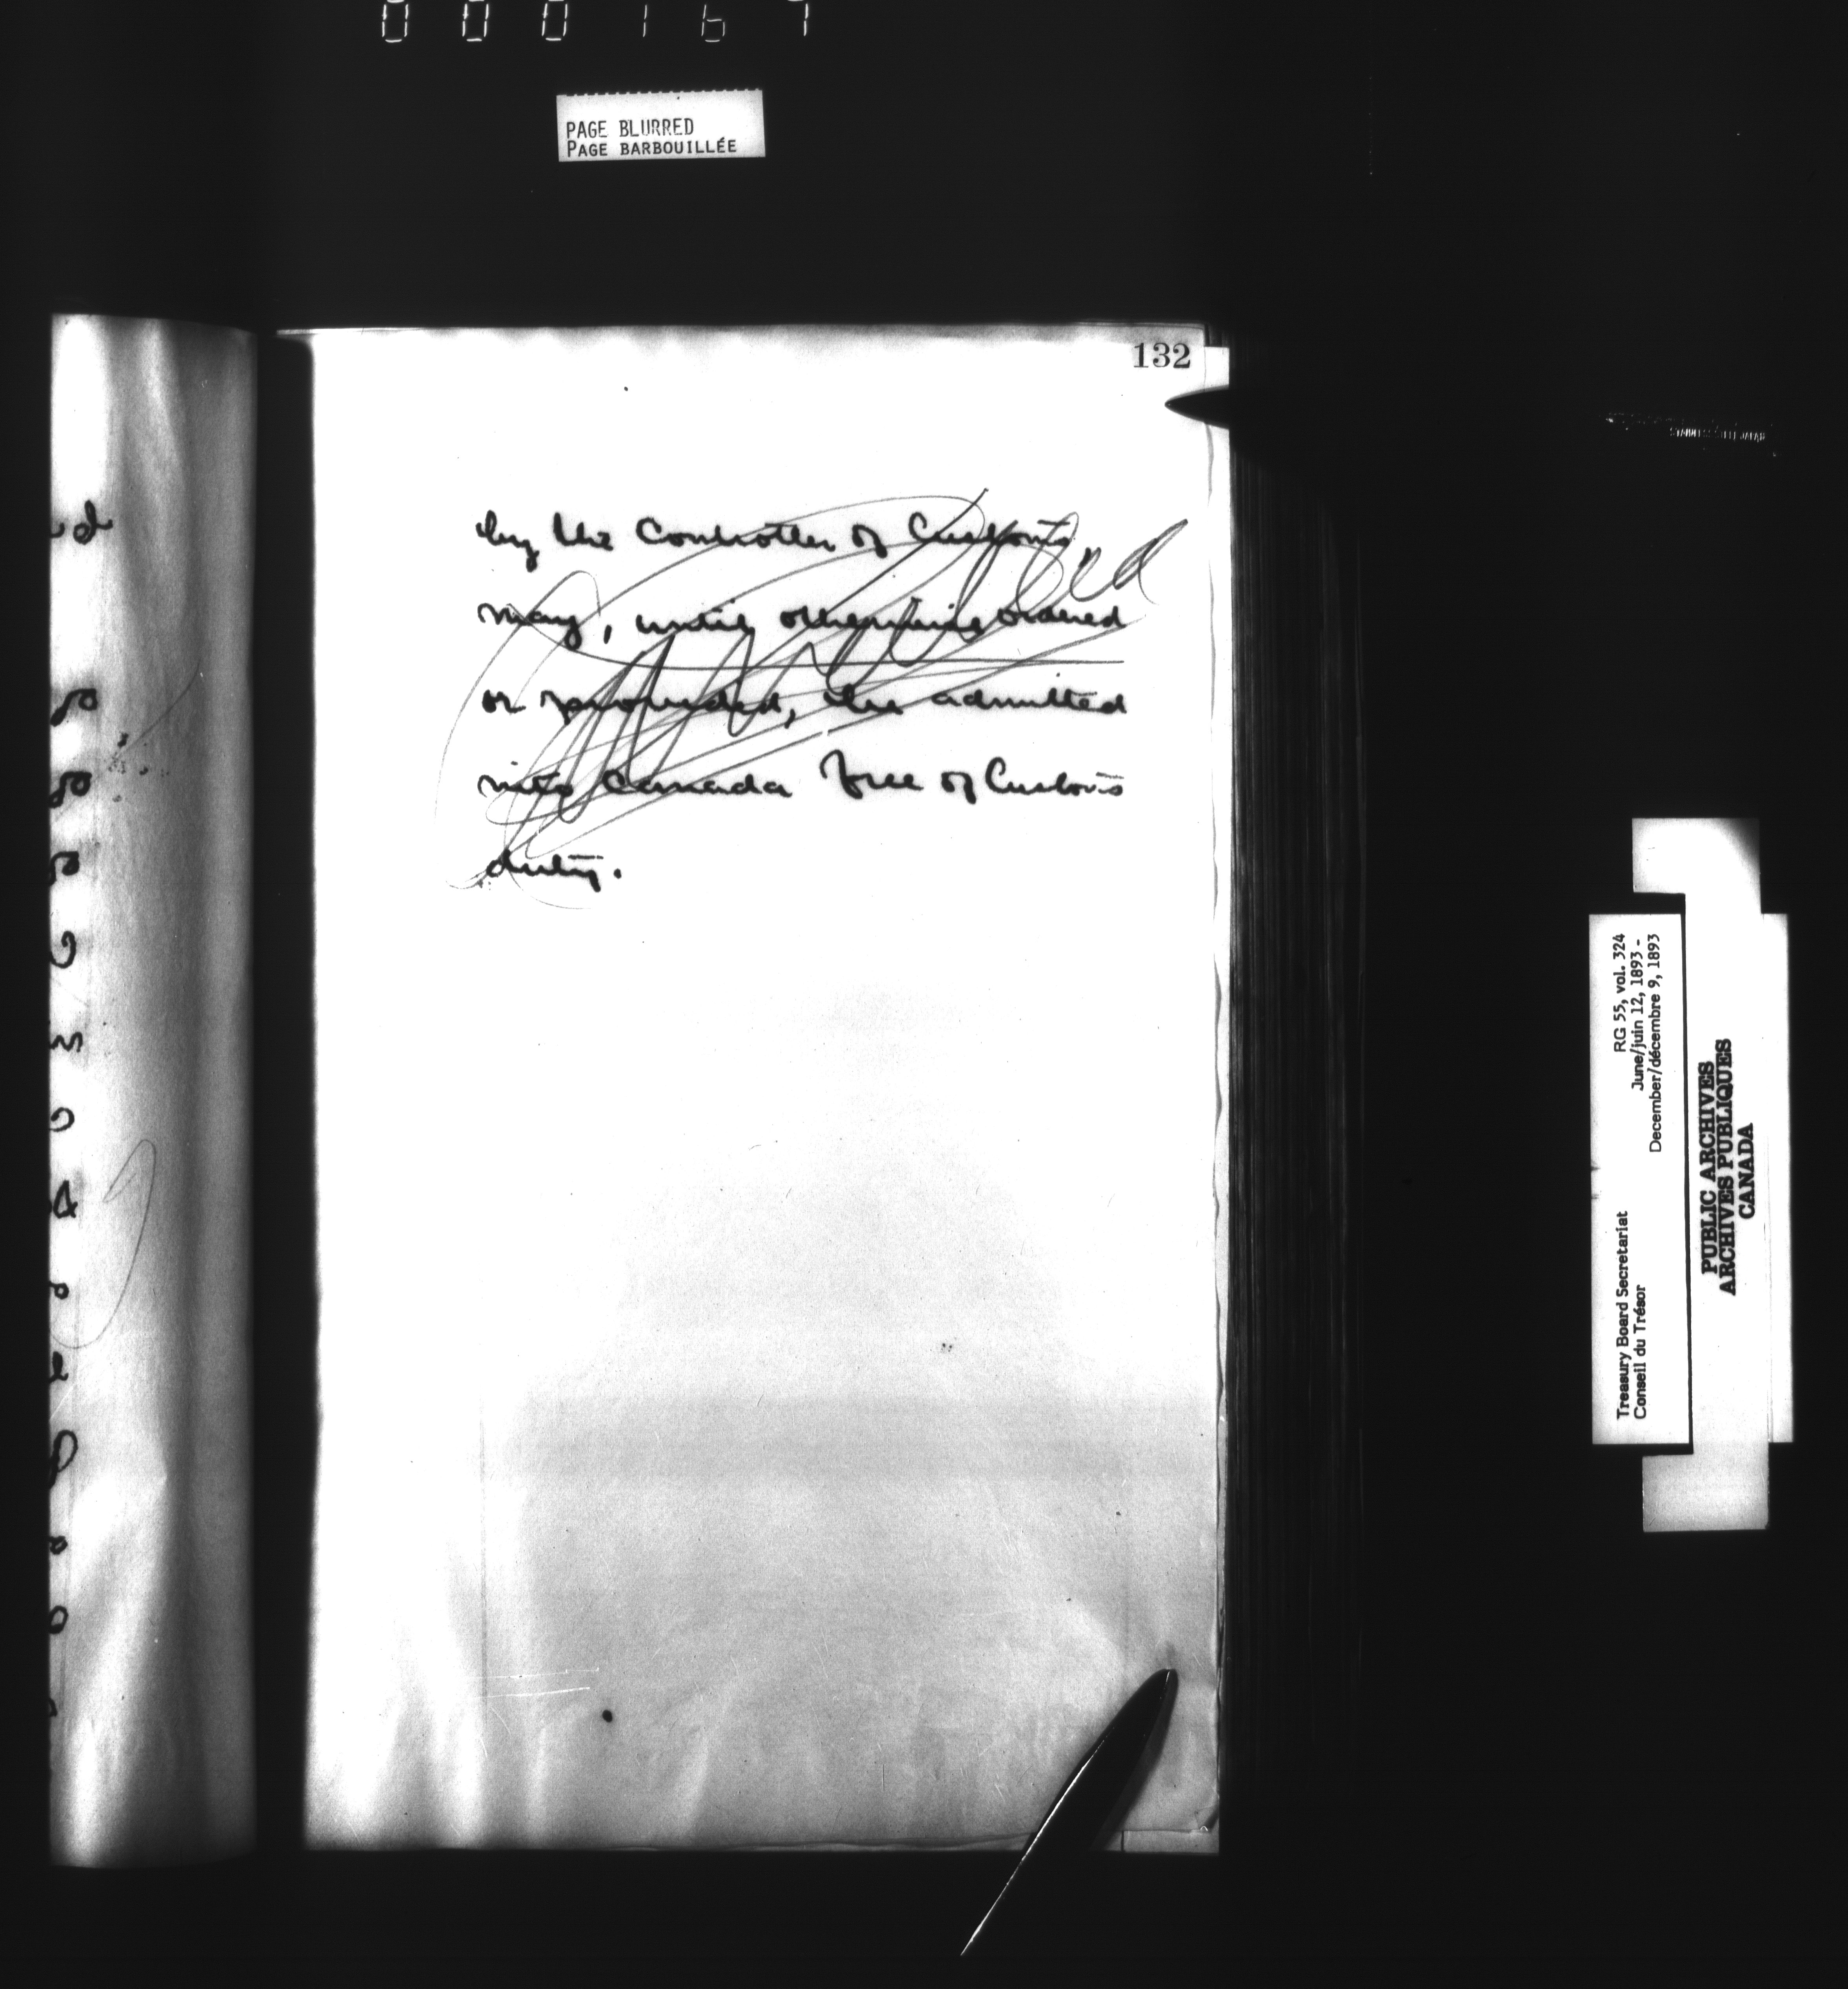 000167
PAGE BLURRED
PAGE BARBOUILLÉE
132
by the Controller of Customs,
may, until otherwise ordered
or provided, be admitted
into Canada free of Customs
duty.
Treasury Board Secretariat RG 55, vol. 324
Conseil du Trésor June/juin 12, 1893 -
December/décembre 9, 1893
PUBLIC ARCHIVES
ARCHIVES PUBLIQUES
CANADA